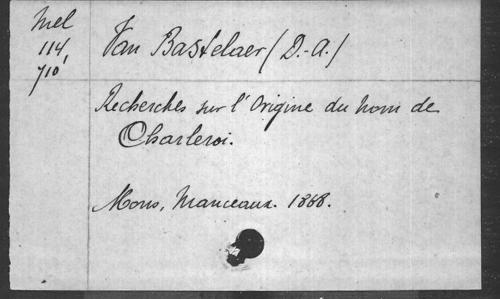 Mel
114
710'
Van Bastelaer (D.-A.)
Recherches sur l'Origine du nom de
Charleroi.
Mons, Manceaux. 1868.